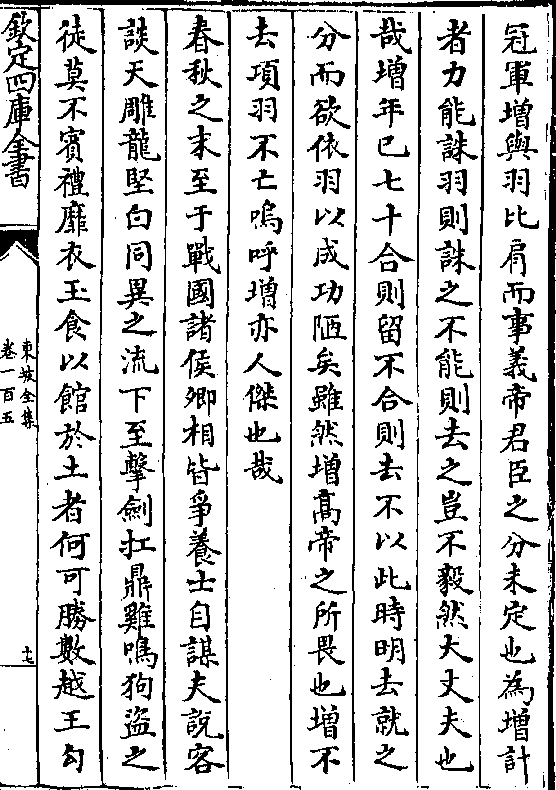 冠軍增與羽比肩而事義帝君臣之分未定也為增計
者力能誅羽則誅之不能則去之豈不毅然大丈夫也
哉增年已七十合則留不合則去不以此時明去就之
分而欲依羽以成功陋矣雖然增高帝之所畏也增不
去項羽不亡嗚呼增亦人傑也哉
春秋之末至于戰國諸侯卿相皆爭養士自謀夫說客
談天雕龍堅白同異之流下至擊劍扛鼎雞鳴狗盜之
徒莫不賓禮靡衣玉食以館於士者何可勝數越王勾
欽定四庫全書
東坡全集
卷一百五
十七